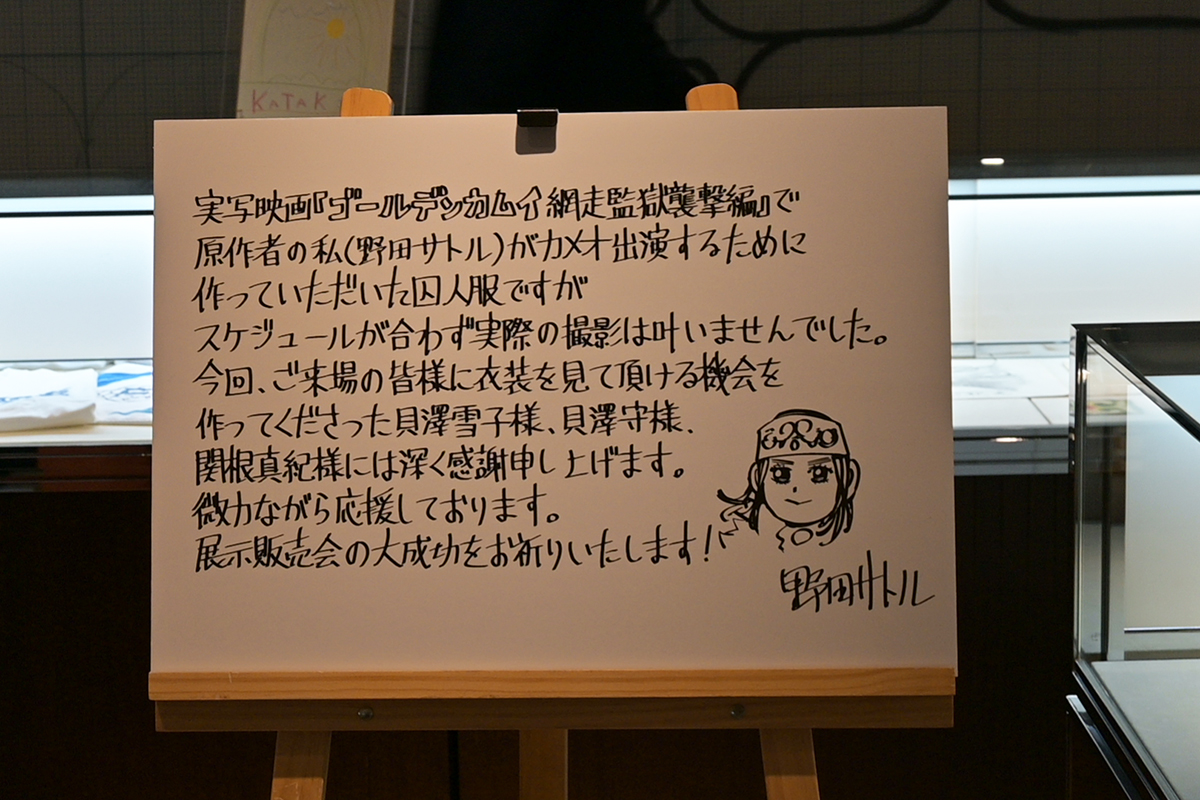 KATAK
実写映画『ゴールデンカムイ網走監獄襲撃編』で
原作者の私(野田サトル)がカメオ出演するために
作っていただいた囚人服ですが
スケジュールが合わず実際の撮影は叶いませんでした。
今回、ご来場の皆様に衣装を見て頂ける機会を
作ってくださった貝澤雪子様、貝澤守様、
関根真紀様には深く感謝申し上げます。
微力ながら応援しております。
展示販売会の大成功をお祈りいたします!
野田サトル